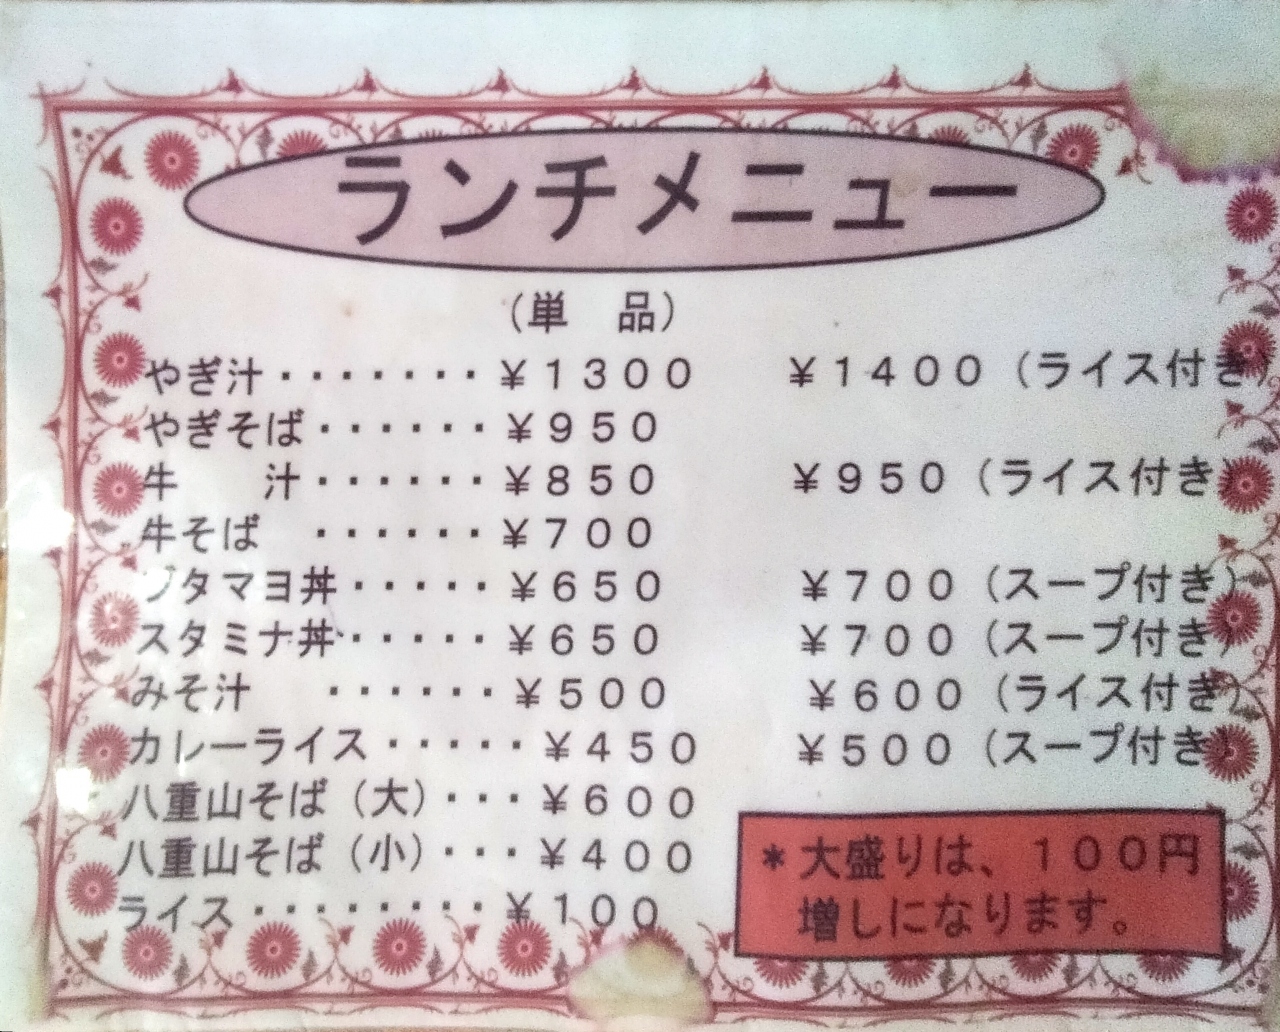 ランチメニュー
（単　品）
やぎ汁・・・・・・・￥１３００　￥１４００（ライス付き）
やぎそば・・・・・・￥９５０
牛　　汁・・・・・・￥８５０　￥９５０（ライス付き）
牛そば　・・・・・・￥７００
ブタマヨ丼・・・・・￥６５０　￥７００（スープ付き）
スタミナ丼・・・・・￥６５０　￥７００（スープ付き）
みそ汁　・・・・・・￥５００　￥６００（ライス付き）
カレーライス・・・・・￥４５０　￥５００（スープ付き）
八重山そば（大）・・・￥６００
八重山そば（小）・・・￥４００
ライス・・・・・・・・￥１００
＊大盛りは、１００円
増しになります。